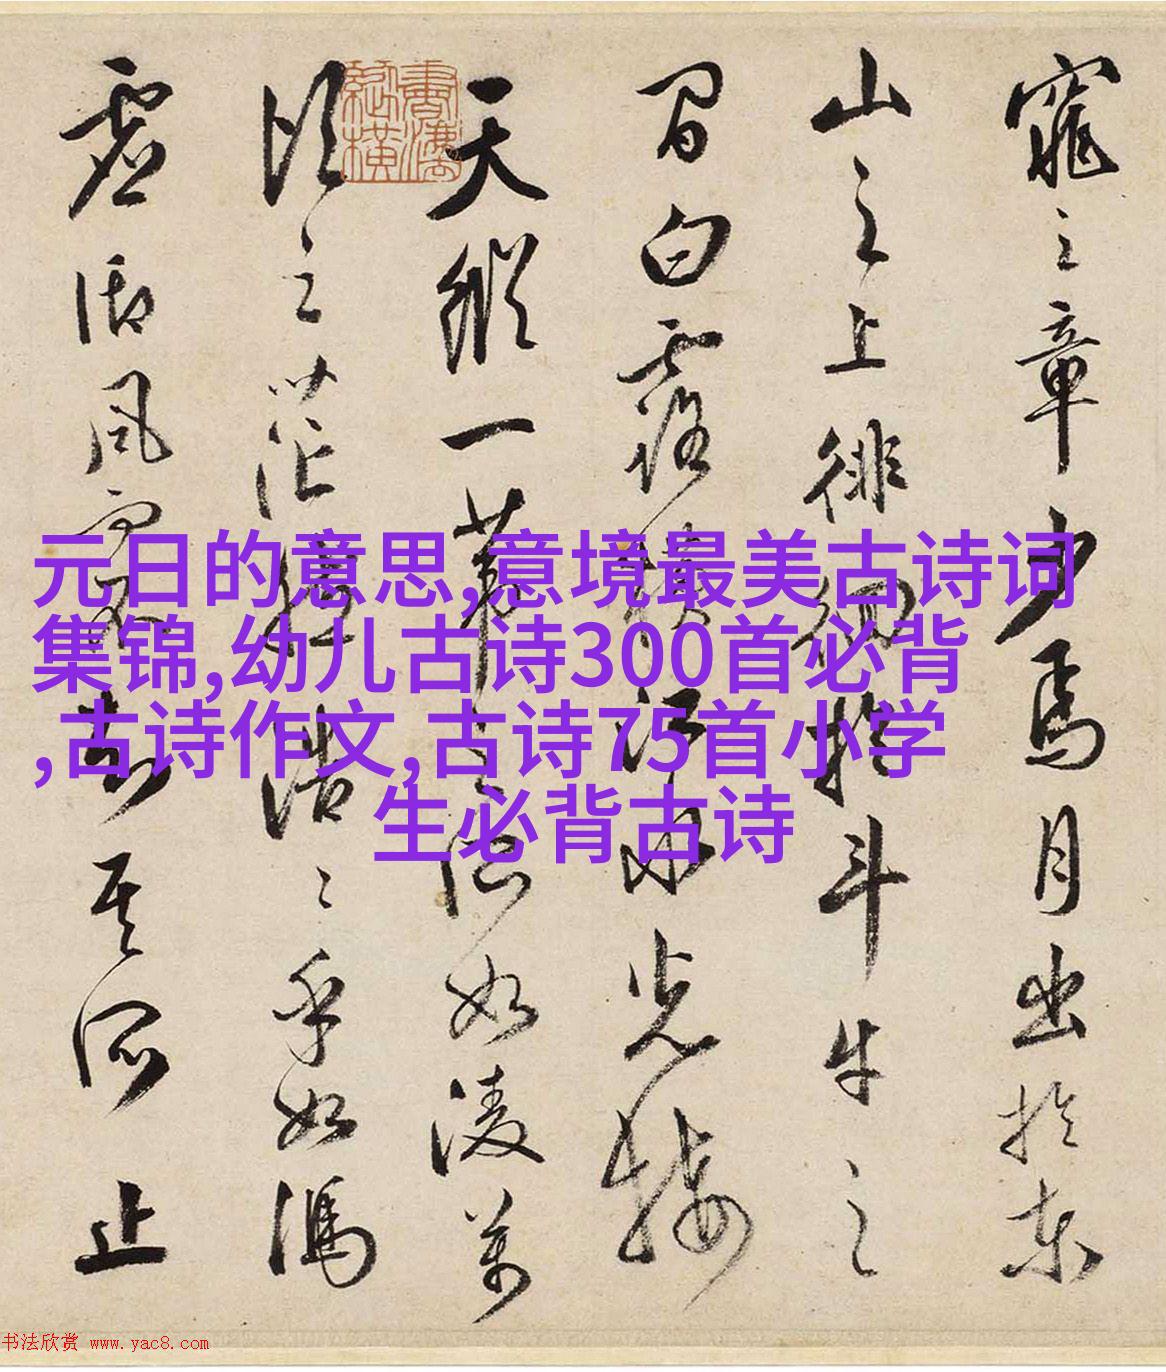 窕之章少焉月出於東
山之上徘徊於斗牛之
間白露橫江水光接
天縱一葦之所如淩萬
頃之茫然浩〻乎如馮
虛御風而不知其所止
書灋
縱橫
元日的意思,意境最美古诗词
集锦,幼儿古诗300首必背
,古诗作文,古诗75首小学
生必背古诗
书法欣赏 www.yac8.com